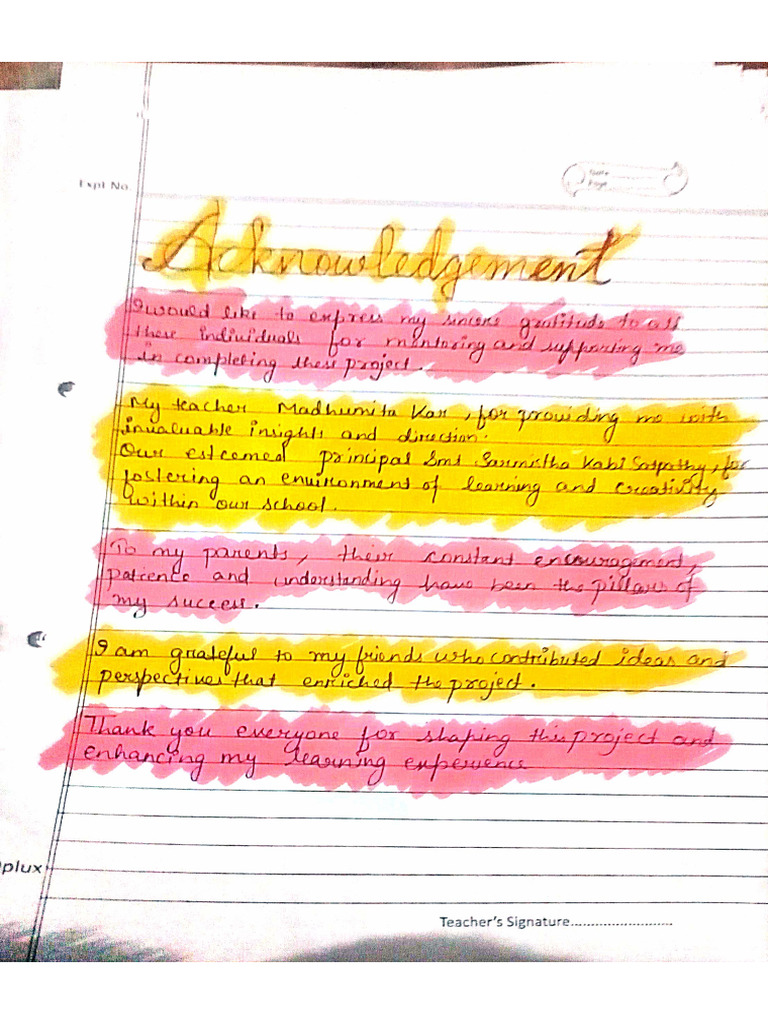 Expt No.
Date
Page
Acknowledgement
I would like to express my sincere gratitude to all
these individuals for mentoring and supporting me
in completing these project.
My teacher Madhumita Kar, for providing me with
invaluable insights and direction.
Our esteemed principal Smt Sarmistha Kabi Satpathy, for
fostering an environment of learning and creativity
within our school.
To my parents, their constant encouragement,
patience and understanding have been the pillars of
my success.
I am grateful to my friends who contributed ideas and
perspectives that enriched the project.
Thank you everyone for shaping this project and
enhancing my learning experience
plux
Teacher's Signature..........................